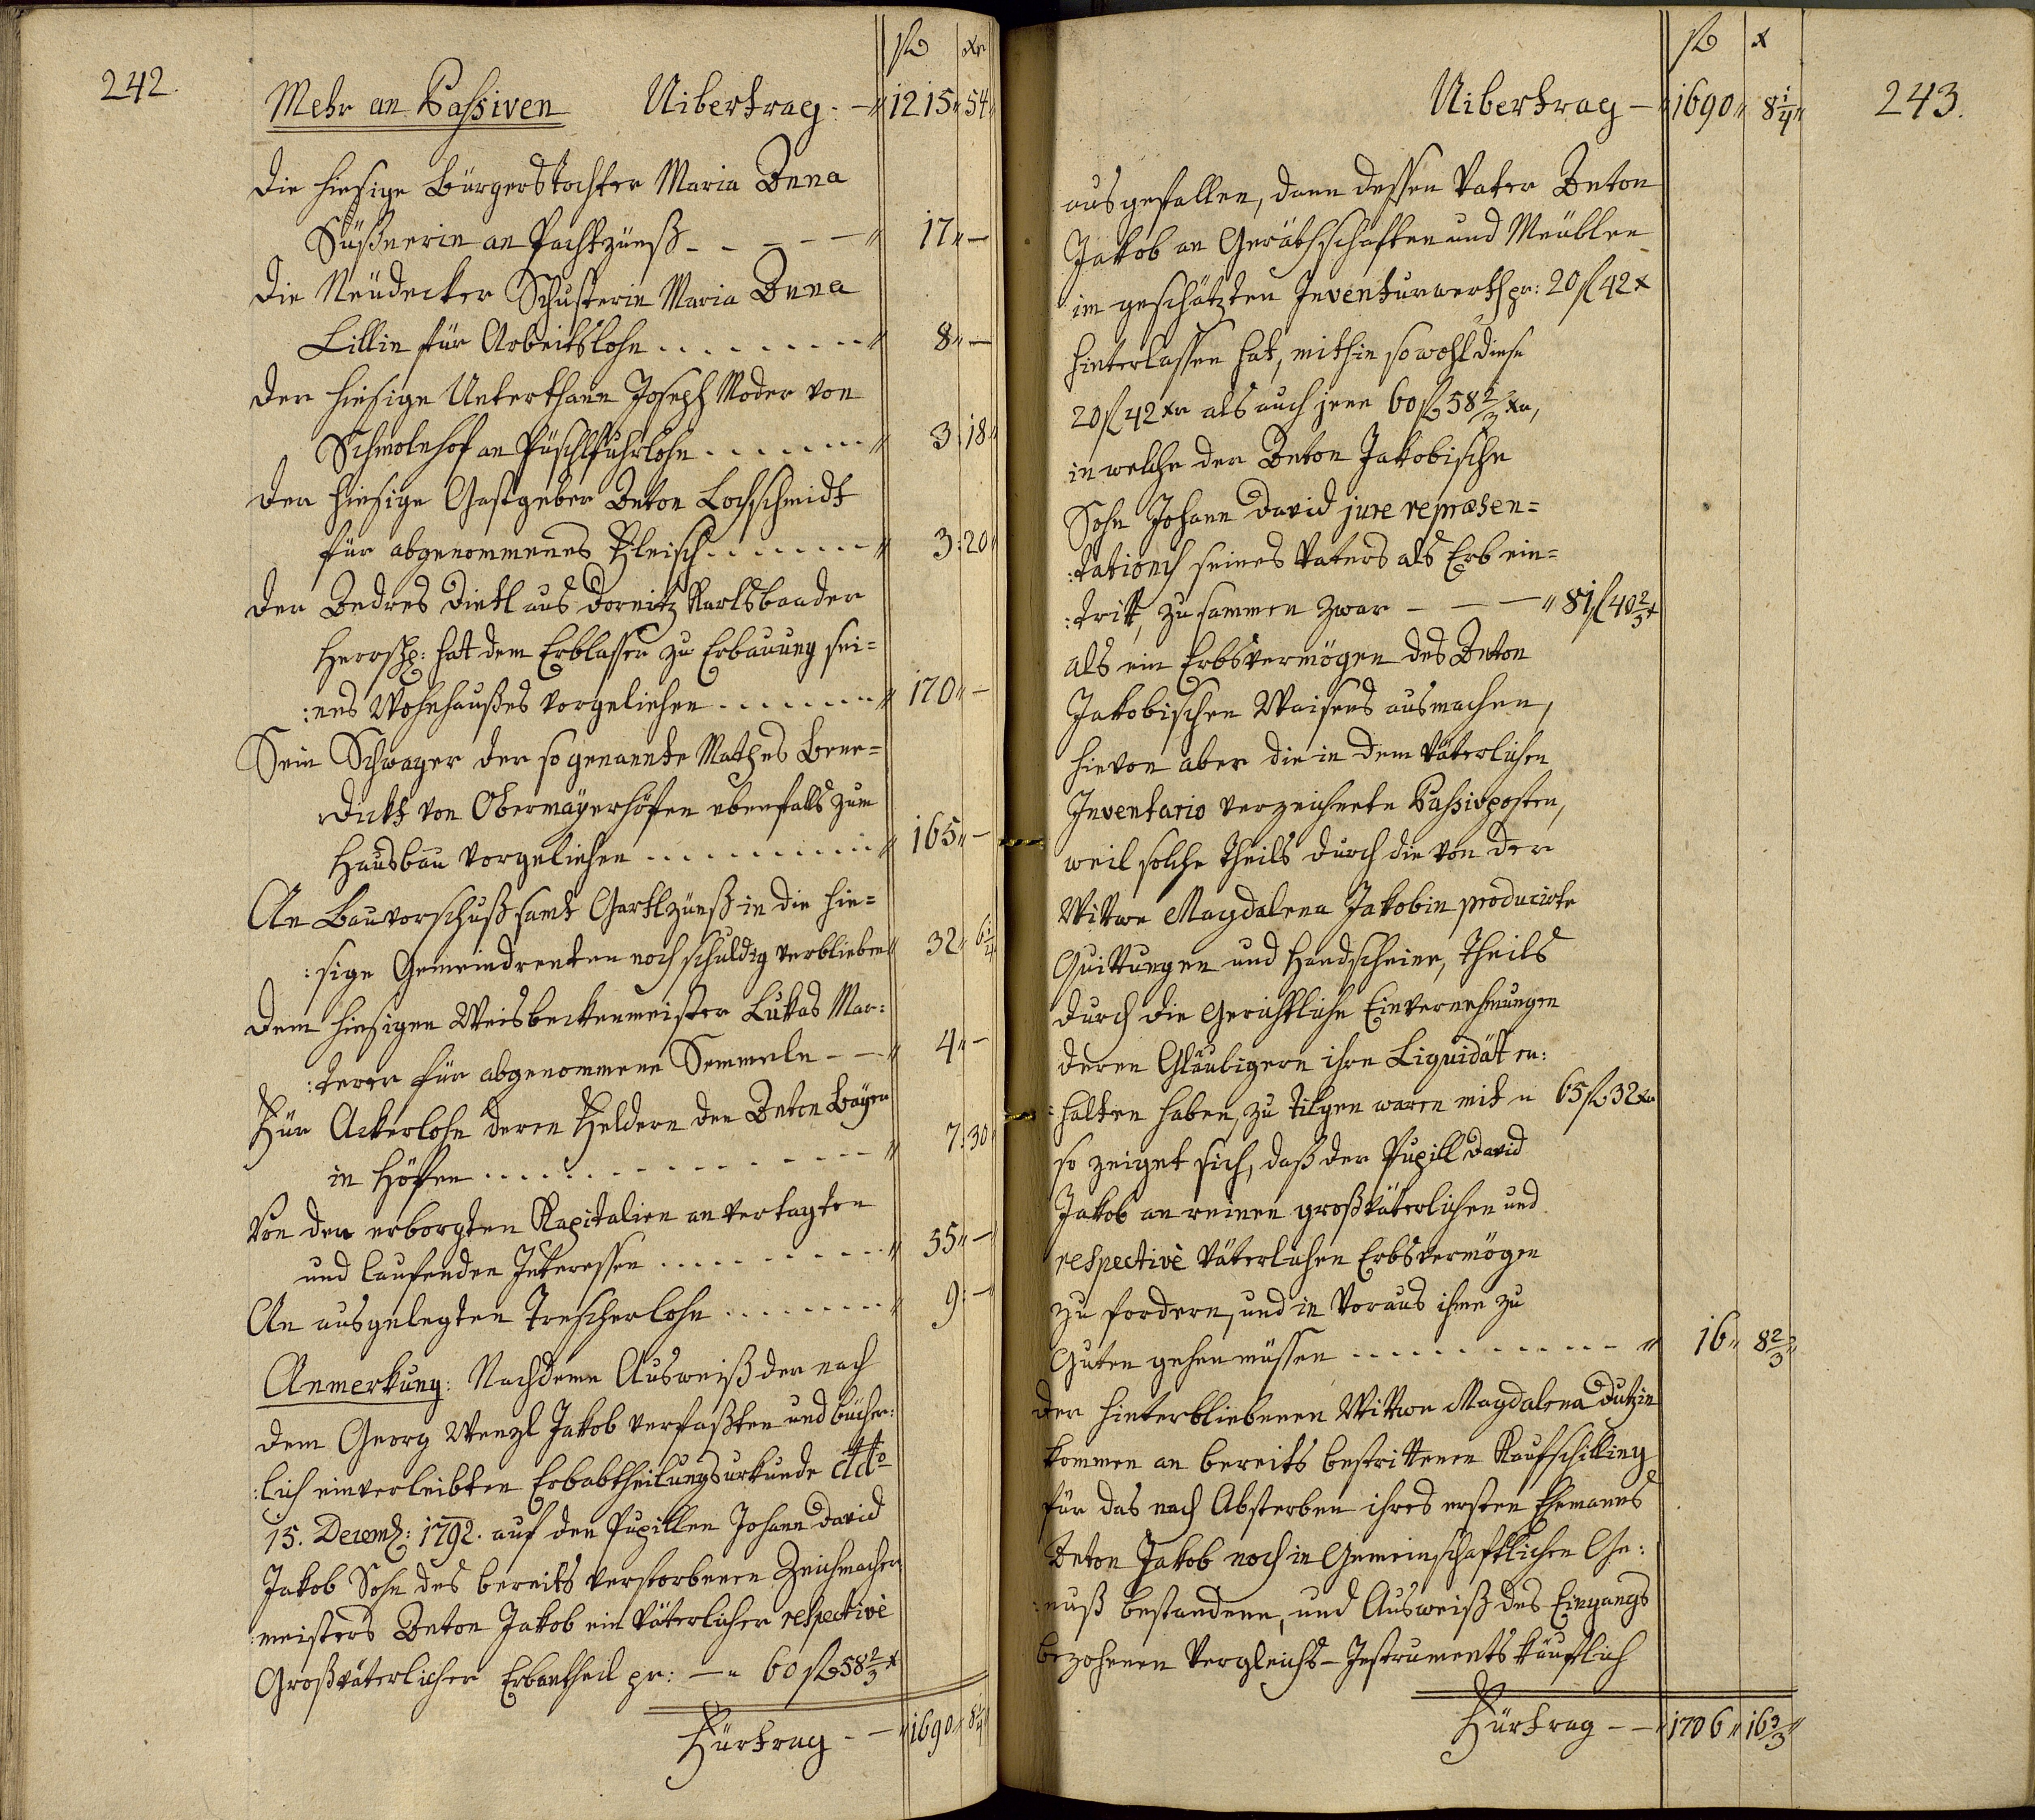 242.
fl xr
Mehr an Passiven Uibertrag - 1215 " 54 "
Die hiesige Bürgerstochter Maria Anna
Süßnerin an Pachtzünß - - - - - " 17 " —
Die Neudecker Schusterin Maria Anna
Lillin für Arbeitslohn . . . . . . . . . " 8 " —
Der hiesige Unterthann Joseph Moder von
Schmolnhof an Püschlfuhrlohn . . . . . . . " 3 : 18 "
Der hiesige Gastgeber Anton Lochschmidt
für abgenommenes Fleisch . . . . . . . " 3 : 20 "
Der Andres Dietl aus Dornitz Karlsbaader
Herrsch: hatt dem Erblasser zu Erbauung sei=
:nes Wohnhaußes vorgeliehen . . . . . . . " 170 " —
Sein Schwager der sogenannte Mathes Bene=
dickt von Obermayerhöfen ebenfalls zum
Hausbau vorgeliehen . . . . . . . . . . " 165 " —
An Bauvorschuß samt Gartlzünß in die hie=
:sige Gemeindrenten noch schuldig verblieben " 32 " 6 1/4
Dem hiesigen Weisbeckenmeister Lukas Mar:
:terer für abgenommene Semmeln - — " 4 " —
Für Ackerlohn deren Feldern den Anton Bayer
in Höfen . . . . . . . . . . . . . . " 7 : 30 "
Von den erborgten Kapitalien an vertagten
und laufenden Interessen . . . . . . . . . " 55 " —
An ausgelegten Drescherlohn . . . . . . . " 9 : —
Anmerkung: Nachdeme Ausweiß der nach
dem Georg Wenzl Jakob verfaßten und bücher:
:lich einverleibten Erbabtheilungsurkunde ddto
15. Decemb: 1792. auf den Pupillen Johann David
Jakob Sohn des bereits verstorbenen Zeichmacher
:meisters Anton Jakob ein Väterlicher respective
Großväterlicher Erbantheil pr: — " 60 fl 58 2/3 x
Fürtrag - — " 1690 " 8 1/4 "
243.
fl x
Uibertrag — " 1690 " 8 1/4 "
ausgefallen, dann dessen Vater Anton
Jakob an Geräthschaften und Meublen
im geschätzten Inventurwerth pr: 20 fl 42 x
hinterlassen hat, mithin sowohl diese
20 fl 42 xr als auch jene 60 fl 58 2/3 xr,
in welche der Anton Jakobische
Sohn Johann David jure repræsen=
:tationis seines Vaters als Erb ein=
:tritt, zusammen zwar - — — " 81 fl 40 2/3 x
als ein Erbsvermögen des Anton
Jakobischen Waisens ausmachen,
hievon aber die in dem Väterlichen
Inventario verzeichnete Passivposten,
weil solche Theils durch die von der
Wittwe Magdalena Jakobin producirte
Quittungen und Handscheine, Theils
durch die Gerichtliche Einvernehmungen
deren Gläubigern ihre Liquidät er:
:halten haben, zu tilgen waren mit " 65 fl 32 xr
so zeiget sich, daß der Pupill David
Jakob an reinen großväterlichen und
respectivè Väterlichen Erbsvermögen
zu fordern, und in Voraus ihme zu
Guten gehen müssen . . . . . . . . . . . " 16 " 8 2/3 "
Der hinterbliebenen Wittwe Magdalena Dutzin
kommen an bereits bestrittenen Kaufschilling
für das nach Absterben ihres ersten Ehemanns
Anton Jakob noch in Gemeinschaftlichen Ge:
:nuß bestandene, und Ausweiß des Eingangs
bezohenen Vergleichs-Instruments käuflich
Fürtrag - — " 1706 " 16 3/3 "